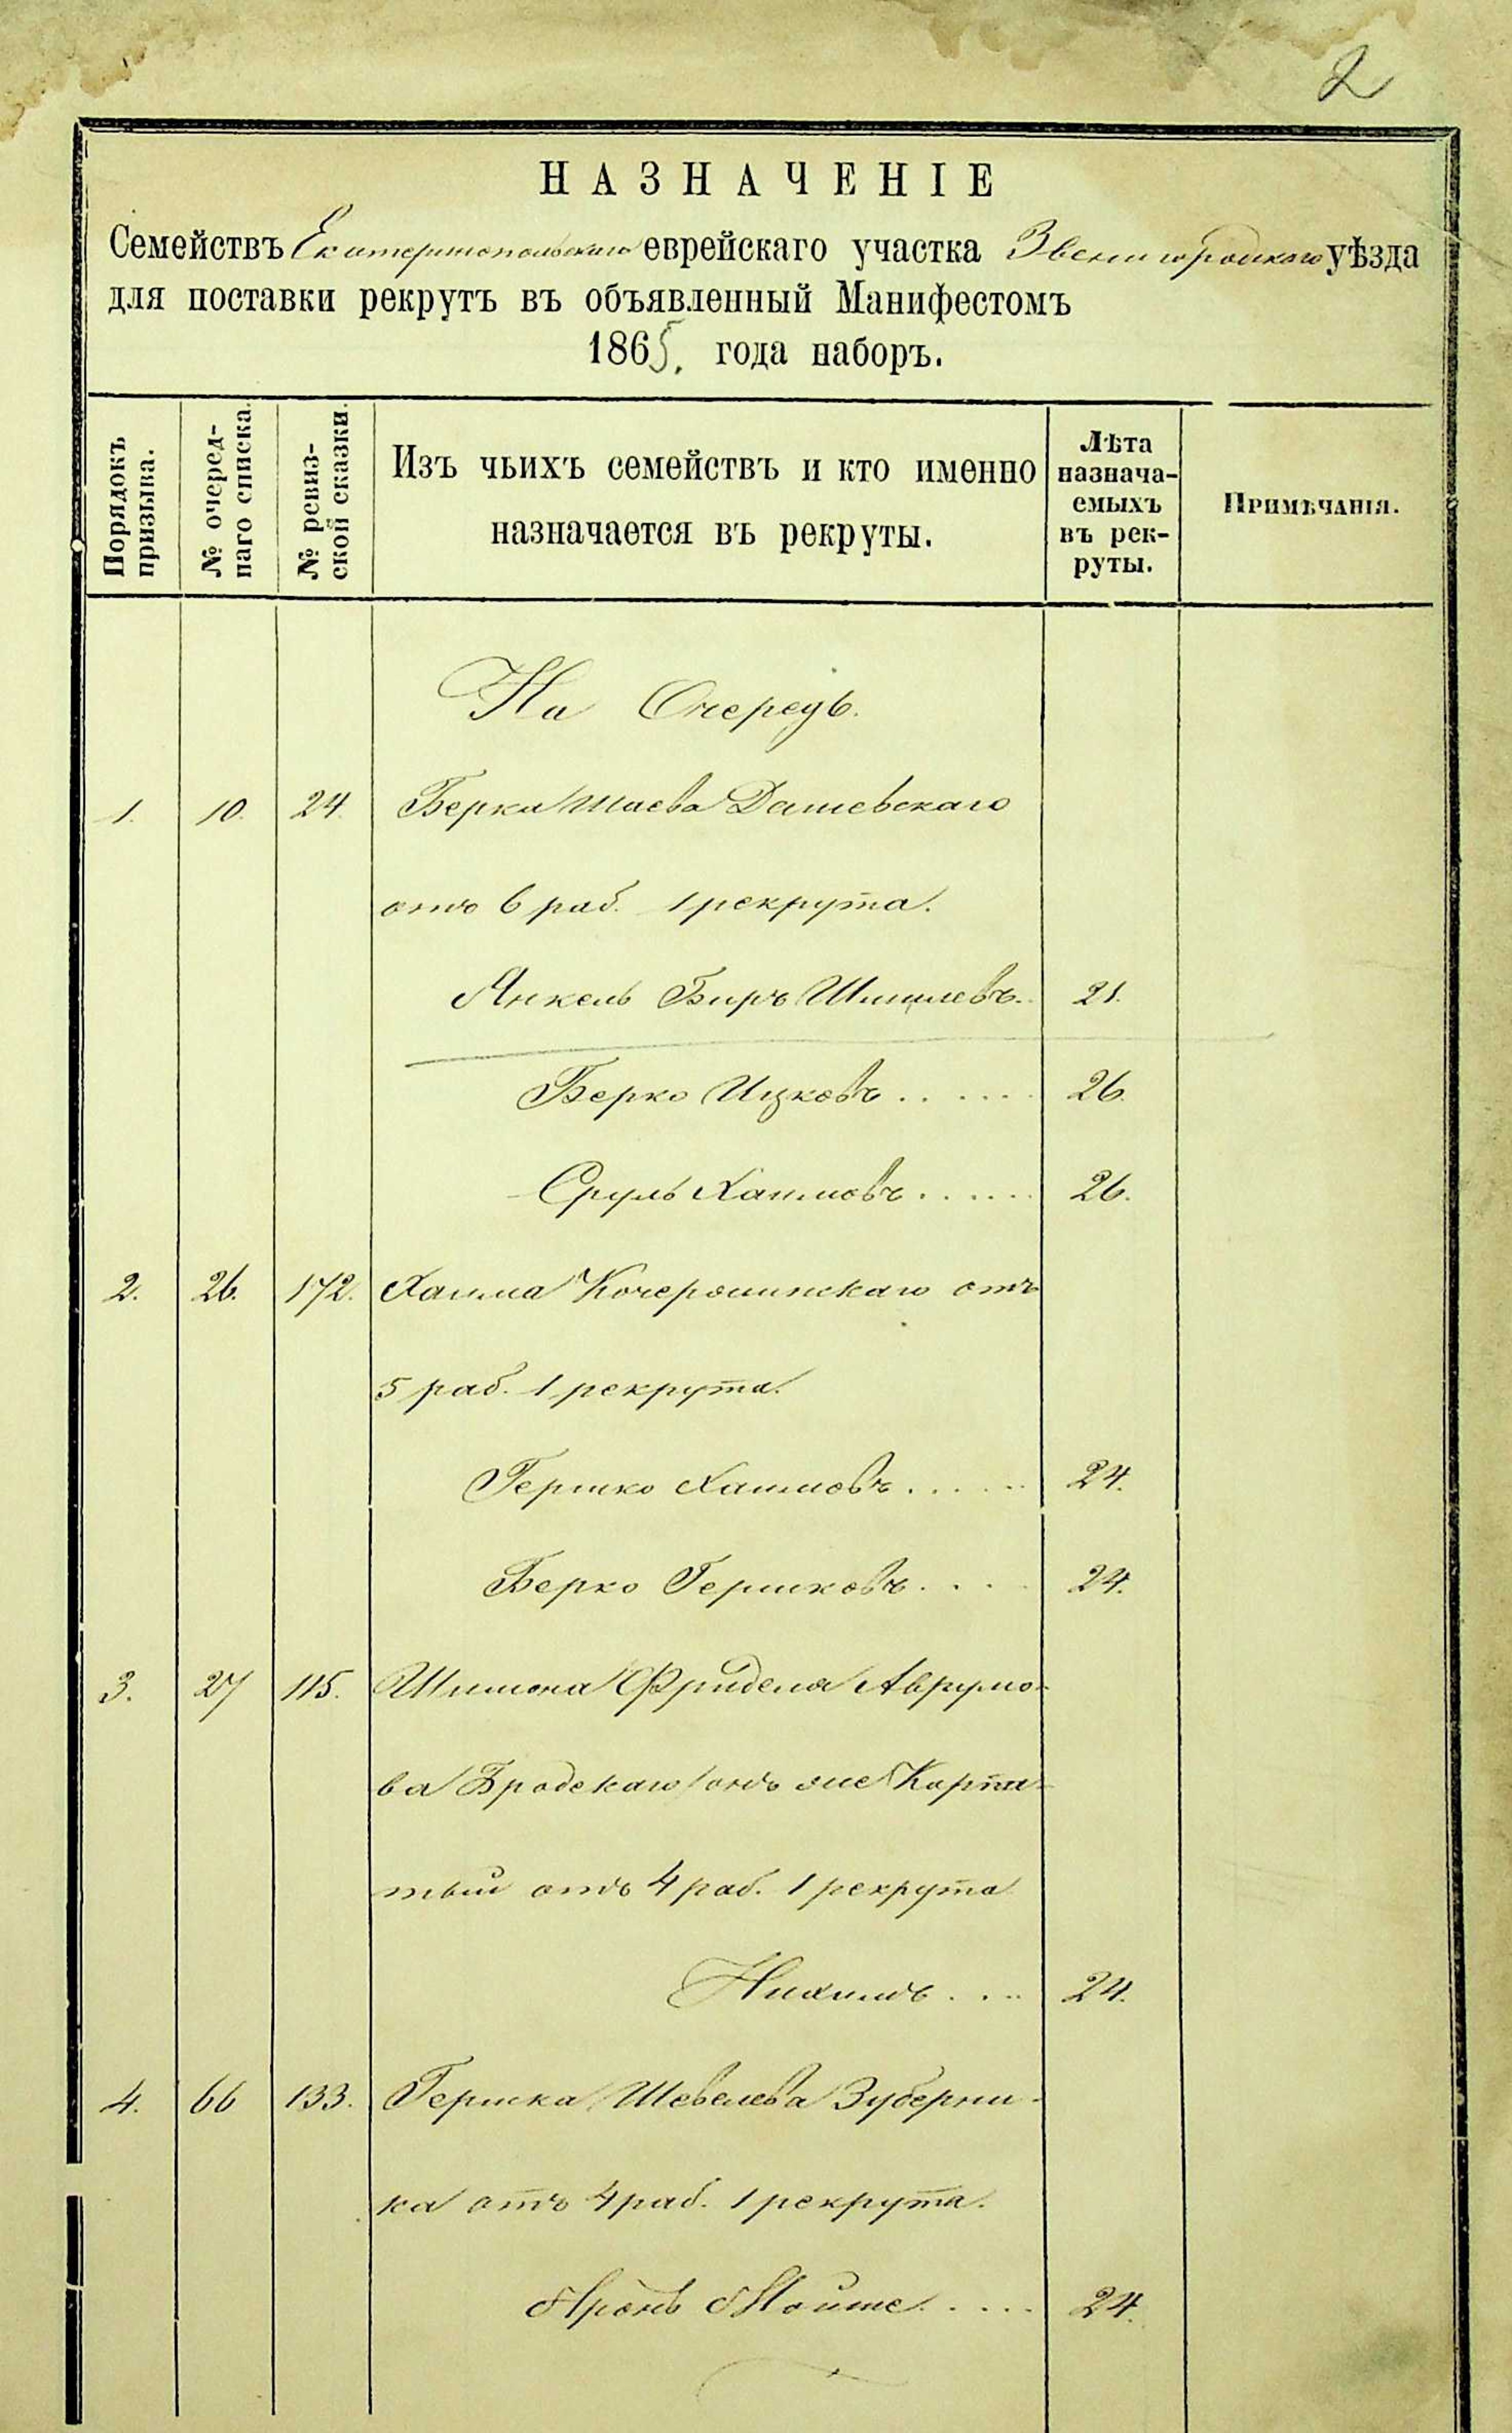 2
НАЗНАЧЕНІЕ
Семействъ Екатеринопольскаго еврейскаго участка Звенигородскаго уѣзда
для поставки рекрутъ въ объявленный Манифестомъ
1865. года наборъ.
Порядокъ призыва.
№ очереднаго списка.
№ ревизской сказки.
Изъ чьихъ семействъ и кто именно
назначается въ рекруты.
Лѣта
назнача-
емыхъ
въ рек-
руты.
Примѣчанія.
На Очередь.
1. 10. 24. Берка Шаева Дашевскаго
отъ 6 раб. 1 рекрута.
Янкель Биръ Шмилевъ. 21.
Берко Ицковъ...... 26.
Сруль Хаимовъ...... 26.
2. 26. 172. Хаима Кочерошинскаго отъ
5 раб. 1 рекрута.
Гершко Хаимовъ...... 24.
Берко Гершковъ.... 24.
3. 27 115. Шимона Фриделя Аврумо-
ва Бродскаго онъ же
отъ 4 раб. 1 рекрута
Нихимъ.... 24.
4. 66 133. Гершка Шевелева Зуберни-
ка отъ 4 раб. 1 рекрута.
Аронъ Мойше..... 24.